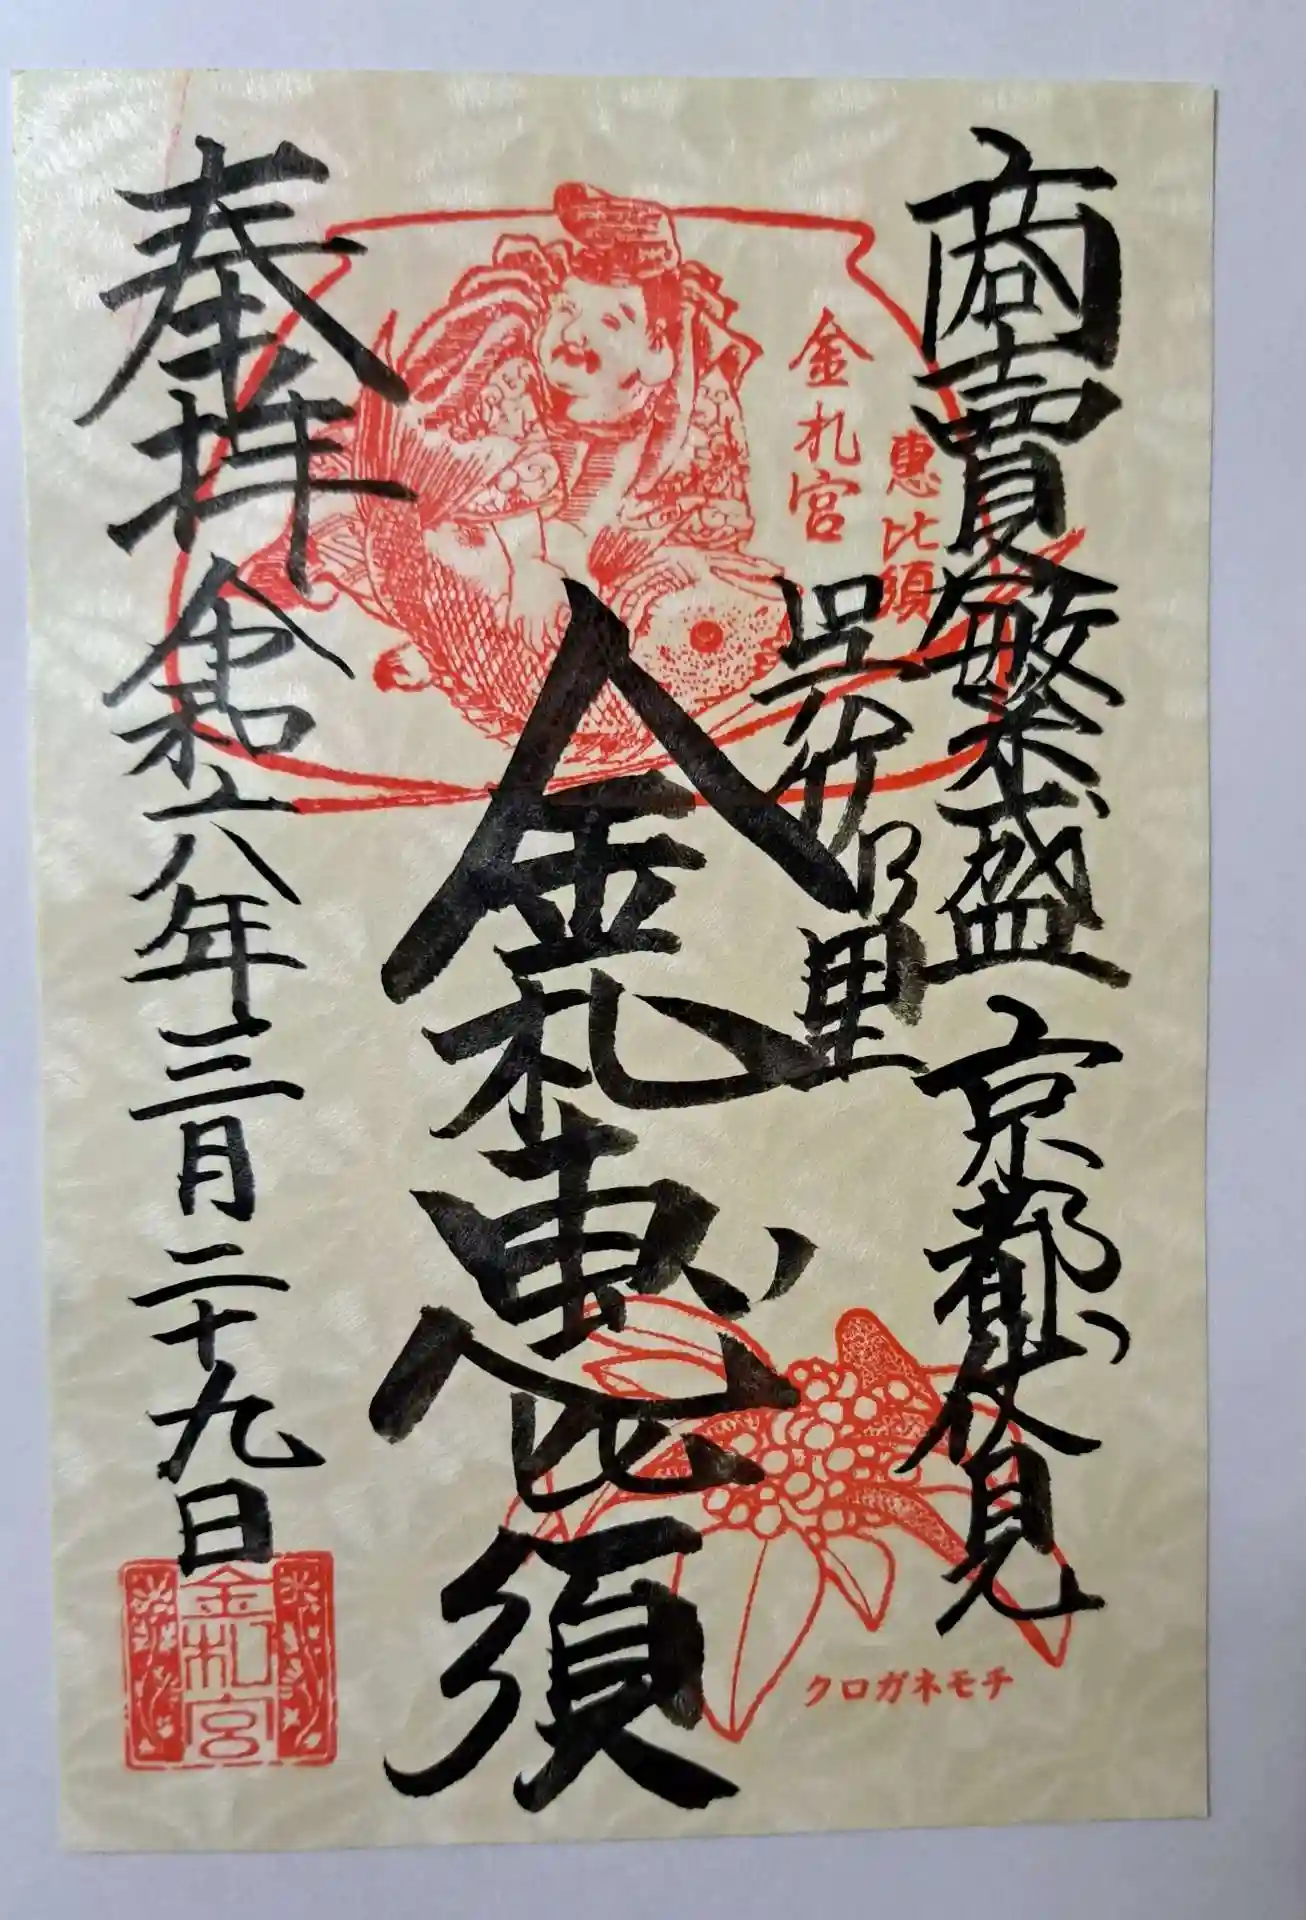 商賣繁盛 京都伏見
惠比須
金札宮
呉竹乃里
金札惠比須
奉拝 令和六年三月二十九日
金札宮
クロガネモチ